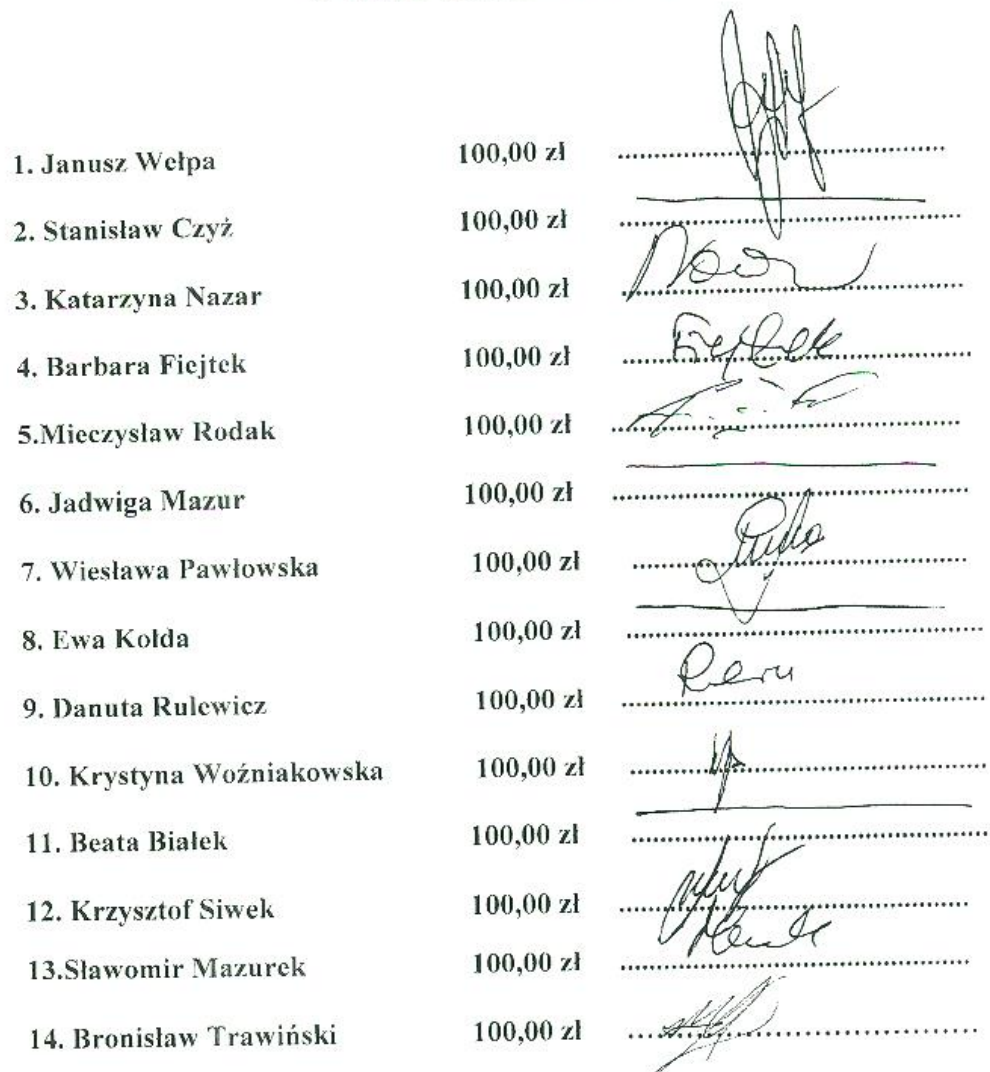 1. Janusz Wełpa 100,00 zł
2. Stanisław Czyż 100,00 zł
3. Katarzyna Nazar 100,00 zł
4. Barbara Fiejtek 100,00 zł
5.Mieczysław Rodak 100,00 zł
6. Jadwiga Mazur 100,00 zł
7. Wiesława Pawłowska 100,00 zł
8. Ewa Kołda 100,00 zł
9. Danuta Rulewicz 100,00 zł
10. Krystyna Woźniakowska 100,00 zł
11. Beata Białek 100,00 zł
12. Krzysztof Siwek 100,00 zł
13.Sławomir Mazurek 100,00 zł
14. Bronisław Trawiński 100,00 zł